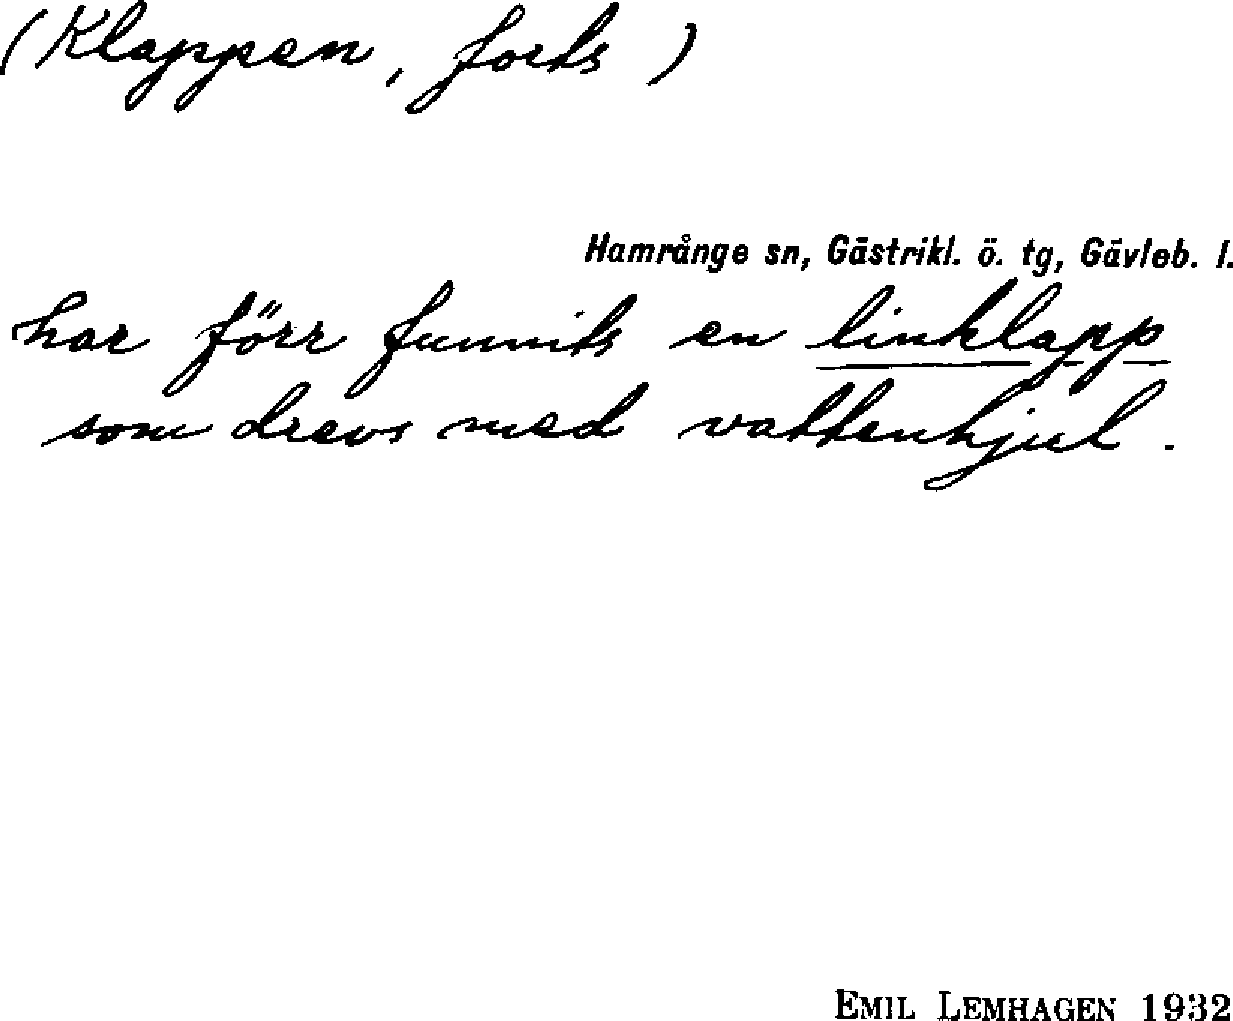 (Klappen, forts)
Hamrånge sn, Gästrikl. ö. tg, Gävleb. l.
har förr funnits en linklapp
som drevs med vattenhjul.
EMIL LEMHAGEN 1932